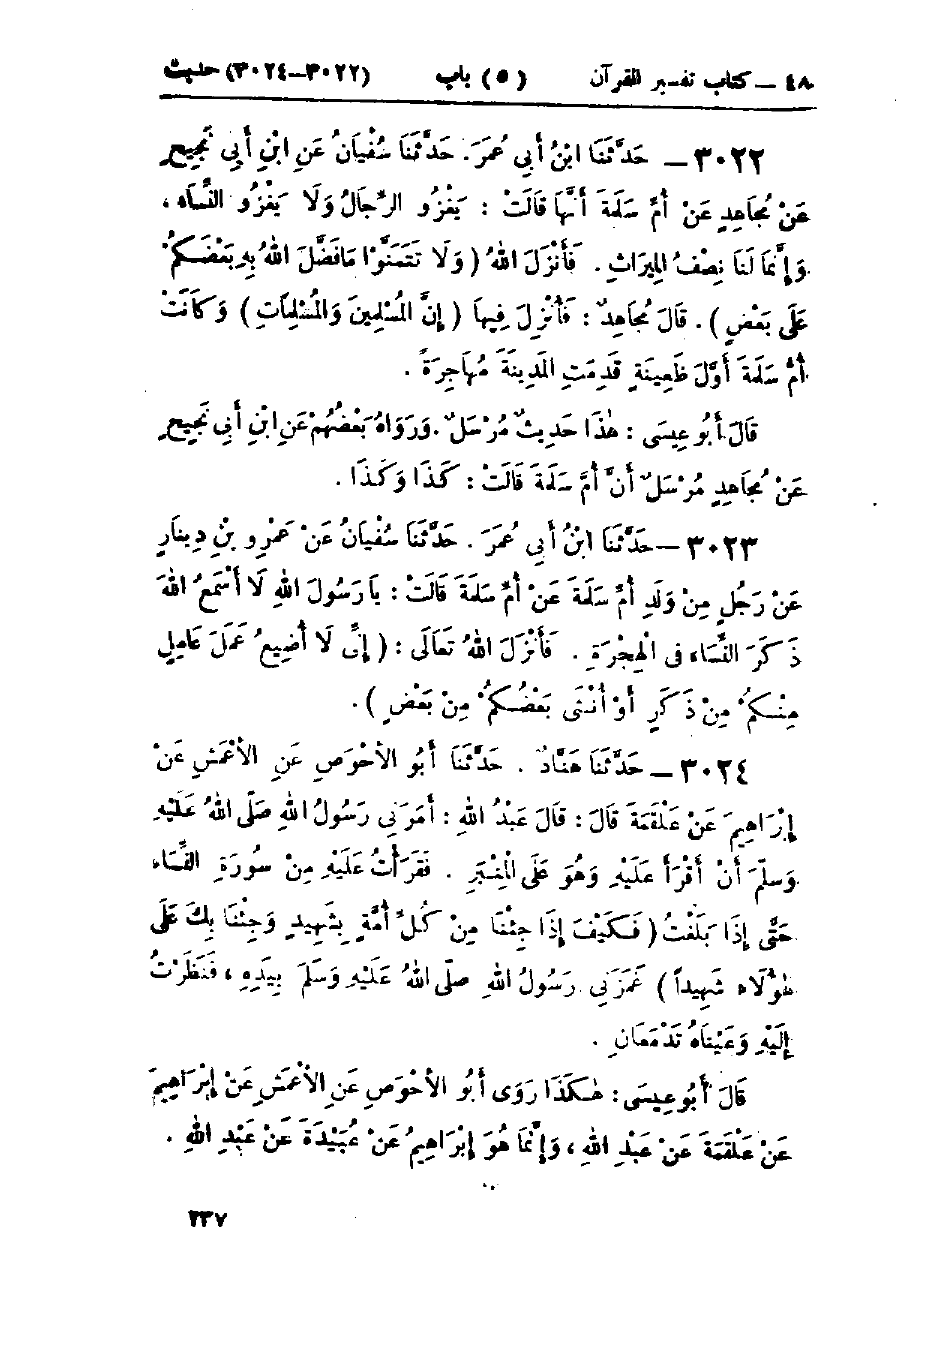 ٤٨ — كتاب تفسير القرآن (٥) باب (٣٠٢٢—٣٠٢٤) حديث
٣٠٢٢ — حَدَّثَنَا ابْنُ أَبِي عُمَرَ. حَدَّثَنَا سُفْيَانُ عَنِ ابْنِ أَبِي نَجِيحٍ
عَنْ مُجَاهِدٍ عَنْ أُمِّ سَلَمَةَ أَنَّهَا قَالَتْ : يَغْزُو الرِّجَالُ وَلَا يَغْزُو النِّسَاء ،
وَإِنَّمَا لَنَا نِصْفُ الْمِيرَاثِ . فَأَنْزَلَ اللهُ ( وَلَا تَتَمَنَّوْا مَا فَضَّلَ اللهُ بِهِ بَعْضَكُمْ
عَلَى بَعْضٍ ) . قَالَ مُجَاهِدٌ : فَأُنْزِلَ فِيهَا ( إِنَّ الْمُسْلِمِينَ وَالْمُسْلِمَاتِ ) وَكَانَتْ
أُمُّ سَلَمَةَ أَوَّلَ ظَعِينَةٍ قَدِمَتِ الْمَدِينَةَ مُهَاجِرَةً .
قَالَ أَبُو عِيسَى : هٰذَا حَدِيثٌ مُرْسَلٌ . وَرَوَاهُ بَعْضُهُمْ عَنِ ابْنِ أَبِي نَجِيحٍ
عَنْ مُجَاهِدٍ مُرْسَلٌ أَنَّ أُمَّ سَلَمَةَ قَالَتْ : كَذَا وَكَذَا .
٣٠٢٣ — حَدَّثَنَا ابْنُ أَبِي عُمَرَ . حَدَّثَنَا سُفْيَانُ عَنْ عَمْرِو بْنِ دِينَارٍ
عَنْ رَجُلٍ مِنْ وَلَدِ أُمِّ سَلَمَةَ عَنْ أُمِّ سَلَمَةَ قَالَتْ : يَا رَسُولَ اللهِ لَا أَسْمَعُ اللهَ
ذَكَرَ النِّسَاء فى الْهِجْرَةِ . فَأَنْزَلَ اللهُ تَعَالَى : ( إِنِّى لَا أُضِيعُ عَمَلَ عَامِلٍ
مِنْكُمْ مِنْ ذَكَرٍ أَوْ أُنْثَى بَعْضُكُمْ مِنْ بَعْضٍ ) .
٣٠٢٤ — حَدَّثَنَا هَنَّادٌ . حَدَّثَنَا أَبُو الأَحْوَصِ عَنِ الأَعْمَشِ عَنْ
إِبْرَاهِيمَ عَنْ عَلْقَمَةَ قَالَ : قَالَ عَبْدُ اللهِ : أَمَرَنِى رَسُولُ اللهِ صَلَّى اللهُ عَلَيْهِ
وَسَلَّمَ أَنْ أَقْرَأَ عَلَيْهِ وَهُوَ عَلَى الْمِنْبَرِ . فَقَرَأْتُ عَلَيْهِ مِنْ سُورَةِ النِّسَاء
حَتَّى إِذَا بَلَغْتُ ( فَكَيْفَ إِذَا جِئْنَا مِنْ كُلِّ أُمَّةٍ بِشَهِيدٍ وَجِئْنَا بِكَ عَلَى
هٰؤُلَاء شَهِيداً ) غَمَزَنِى رَسُولُ اللهِ صَلَّى اللهُ عَلَيْهِ وَسَلَّمَ بِيَدِهِ ، فَنَظَرْتُ
إِلَيْهِ وَعَيْنَاهُ تَدْمَعَانِ .
قَالَ أَبُو عِيسَى : هٰكَذَا رَوَى أَبُو الأَحْوَصِ عَنِ الأَعْمَشِ عَنْ إِبْرَاهِيمَ
عَنْ عَلْقَمَةَ عَنْ عَبْدِ اللهِ ، وَإِنَّمَا هُوَ إِبْرَاهِيمُ عَنْ عُبَيْدَةَ عَنْ عَبْدِ اللهِ .
٢٣٧